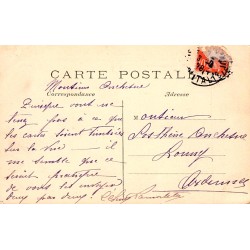 CARTE POSTALE
Correspondance
Adresse
Monsieur Orchesne
Puisque vous
tenez pas à ce que
les cartes soient timbrées
sur la vue — il
me semble que ce
serait pratique
de vous les envoyer
deux par deux!
Monsieur
Orchesne
Ardennes